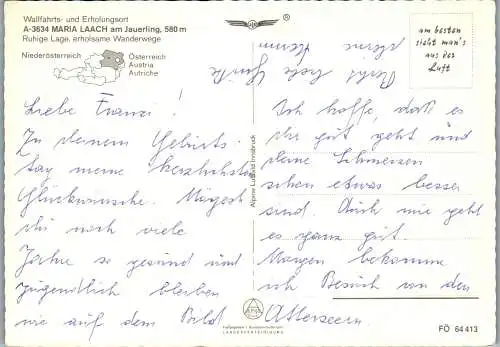 Wallfahrts- und Erholungsort
A-3634 MARIA LAACH am Jauerling, 580 m
Ruhige Lage, erholsame Wanderwege
Niederösterreich
Österreich
Austria
Autriche
®
am besten
sieht man's
aus der
Luft
Liebe Franzi!
Zu deinem Geburts-
tag meine herzlichsten
Glückwünsche. Mögest
du noch viele
Jahre so gesund und
jugendlich bleiben
wie auf dem Bild
Alpine Luftbild Innsbruck
Ich hoffe, daß es
dir gut geht und
deine Schmerzen
schon etwas besser
sind. Auch mir geht
es ganz gut.
Morgen bekomme
ich Besuch von den
Atterseern
Recht liebe Grüße
deine
LANDESVERTEIDIGUNG
FÖ 64413